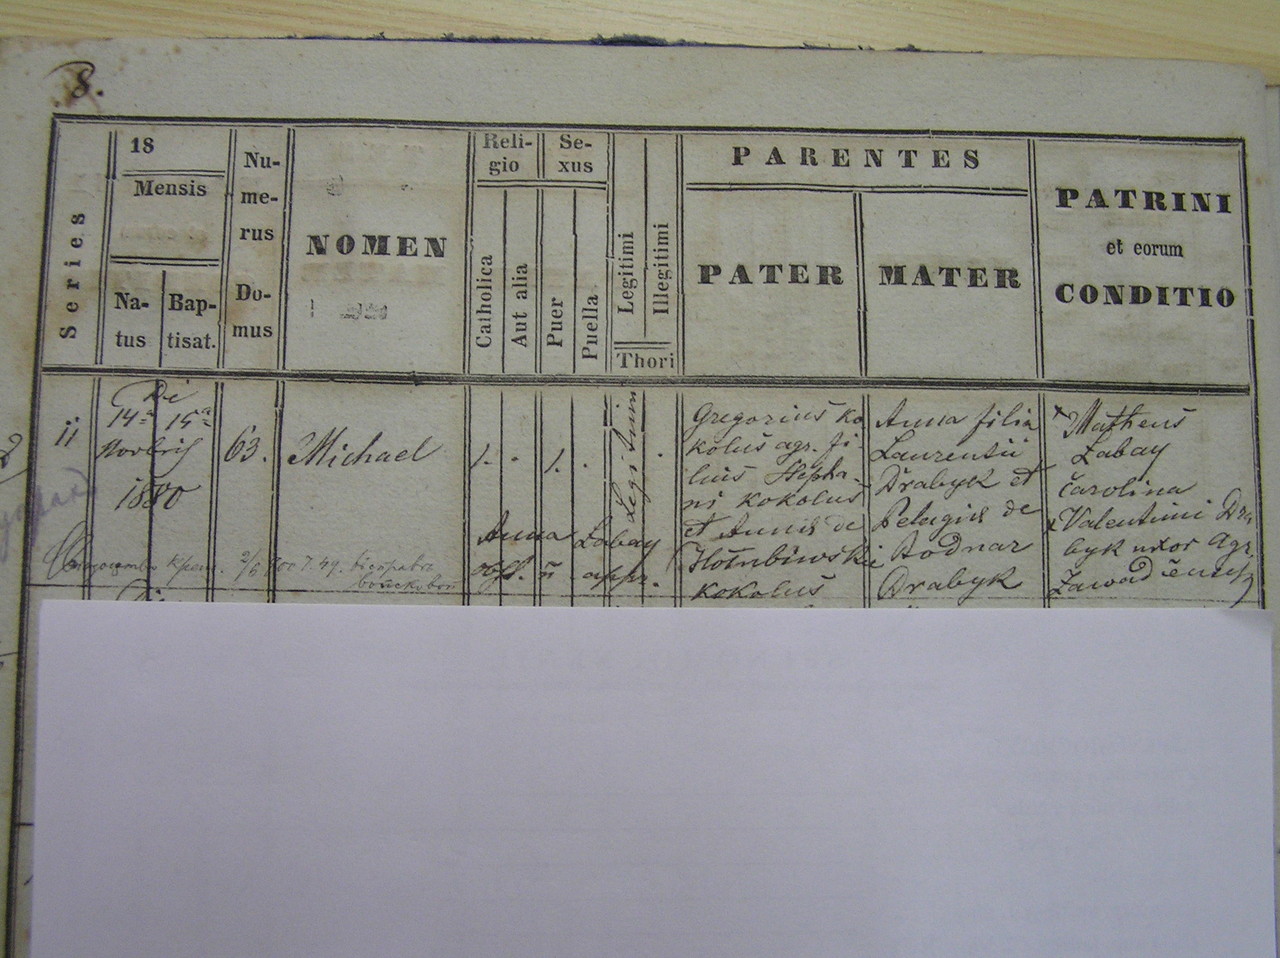 8.
Series
18
Mensis
Na-
tus
Bap-
tisat.
Nu-
me-
rus
Do-
mus
NOMEN
Reli-
gio
Catholica
Aut alia
Se-
xus
Puer
Puella
Legitimi
Illegitimi
Thori
PARENTES
PATER
MATER
PATRINI
et eorum
CONDITIO
11
Die
14a 15a
Novbris
1880
63.
Michael
1. .
1. .
Legitimi
.
Anna Labay
obst. appr.
Gregorius Ko
koluś agr. fi
lius Stepha
ni Kokoluś
et Annis de
Hołubiwski
Kokoluś
Anna filia
Laurentii
Drabyk et
Pelagiis de
Bodnar
Drabyk
Matheus
Labay
Carolina
Valentini Dra
byk uxor agr.